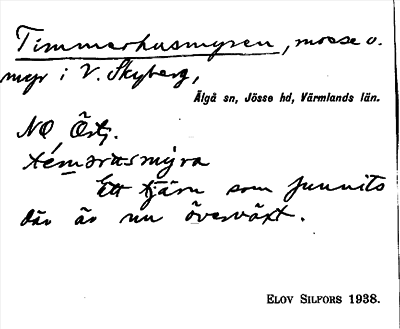 Timmerhusmyren, mosse o.
myr i V. Skyberg,
Älgå sn, Jösse hd, Värmlands län.
NO, Östj.
témərusmýra
Ett tjärn som funnits
där är nu överväxt.
ELOV SILFORS 1938.